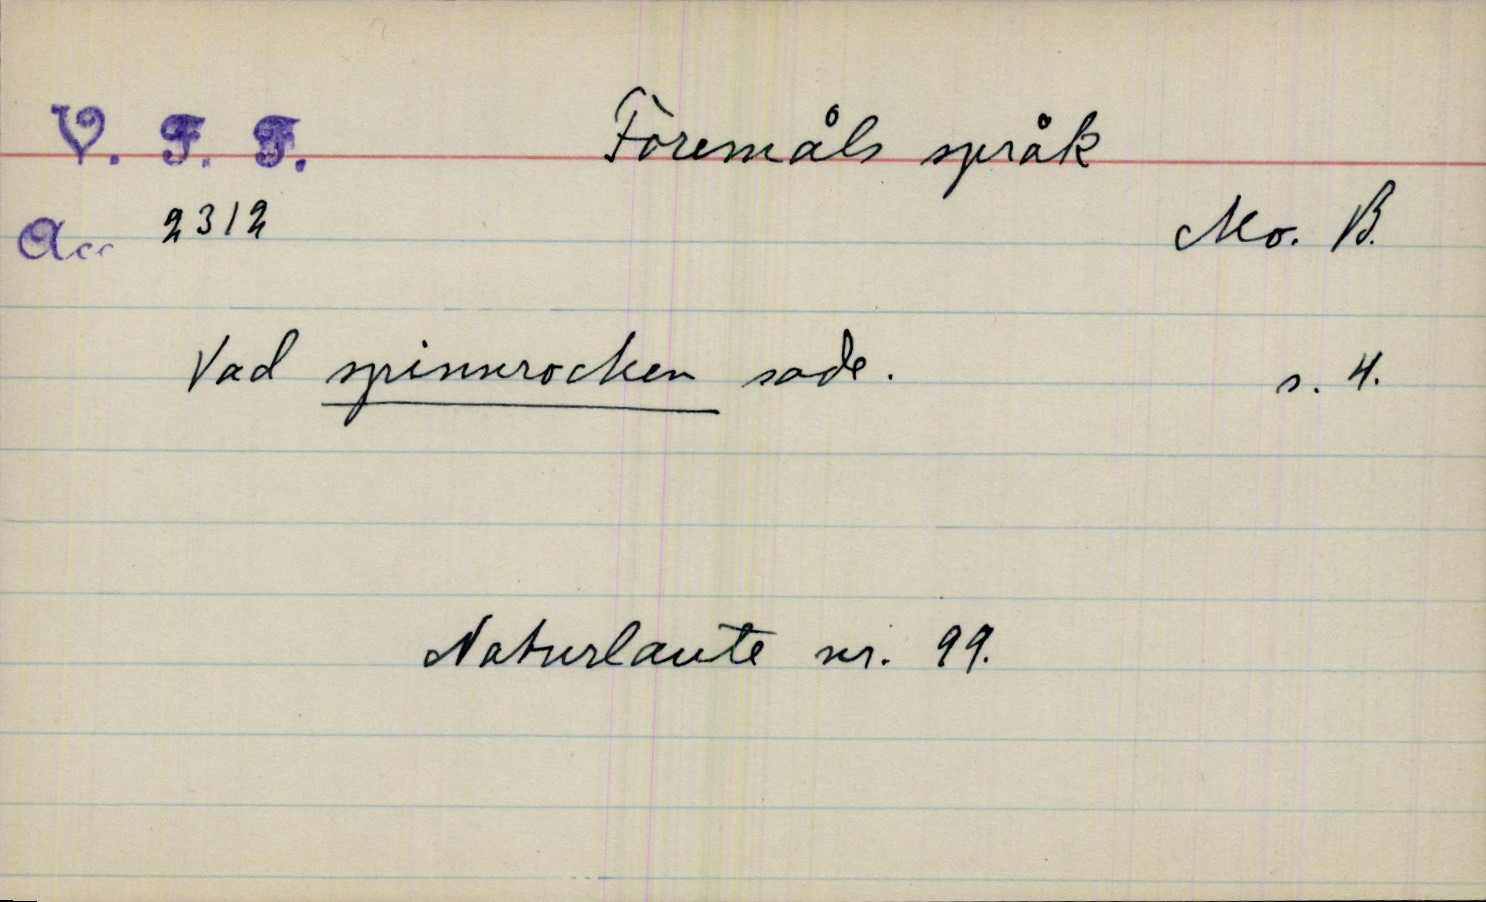 V. F. F. Föremåls språk
Acc 2312 Mo. B.
Vad spinnrocken sade. s. 4.
Naturlaute nr. 99.